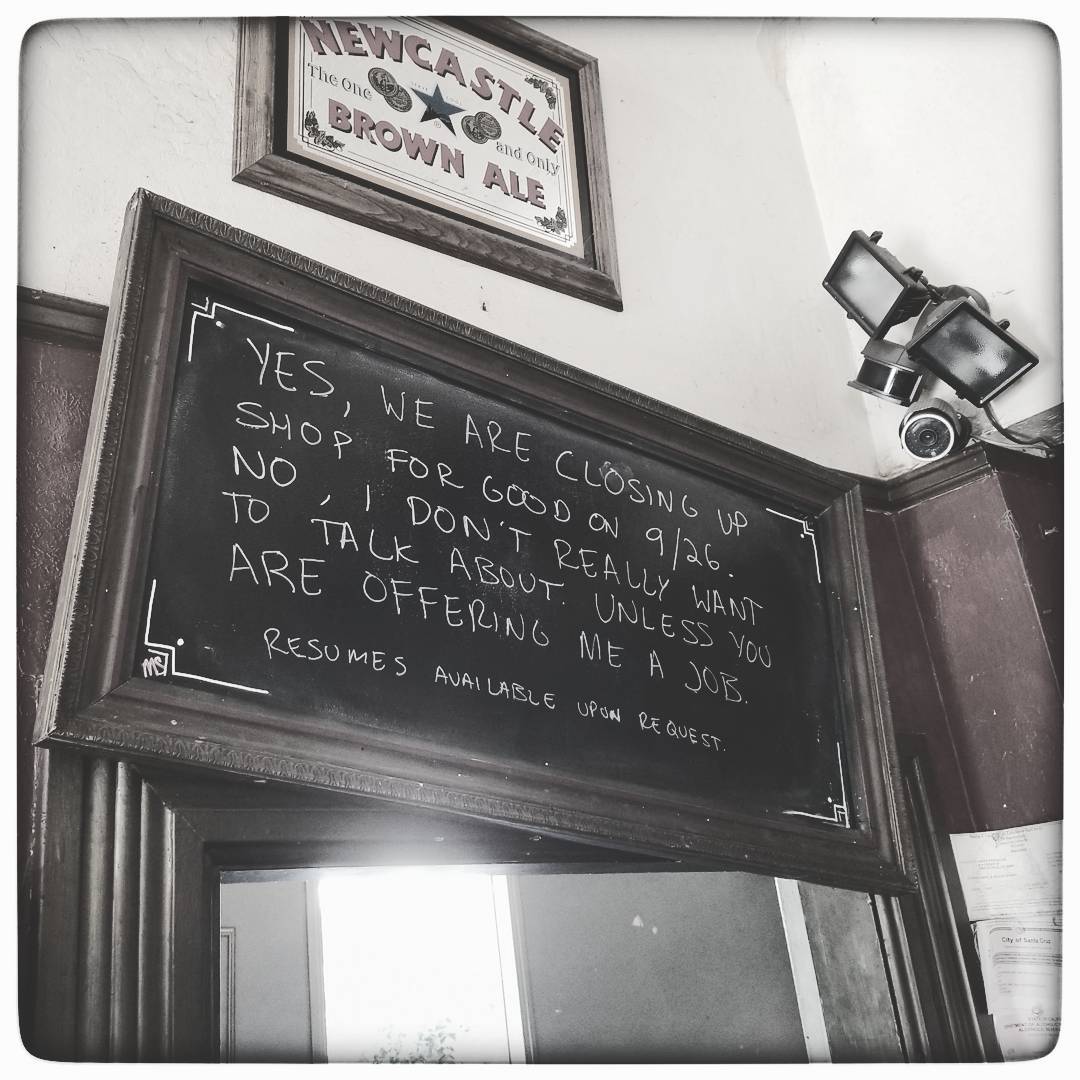 NEWCASTLE
The One
and Only
BROWN ALE
YES, WE ARE CLOSING UP
SHOP FOR GOOD ON 9/26.
NO, I DON'T REALLY WANT
TO TALK ABOUT. UNLESS YOU
ARE OFFERING ME A JOB.
RESUMES AVAILABLE UPON REQUEST.
MS
City of Santa Cruz